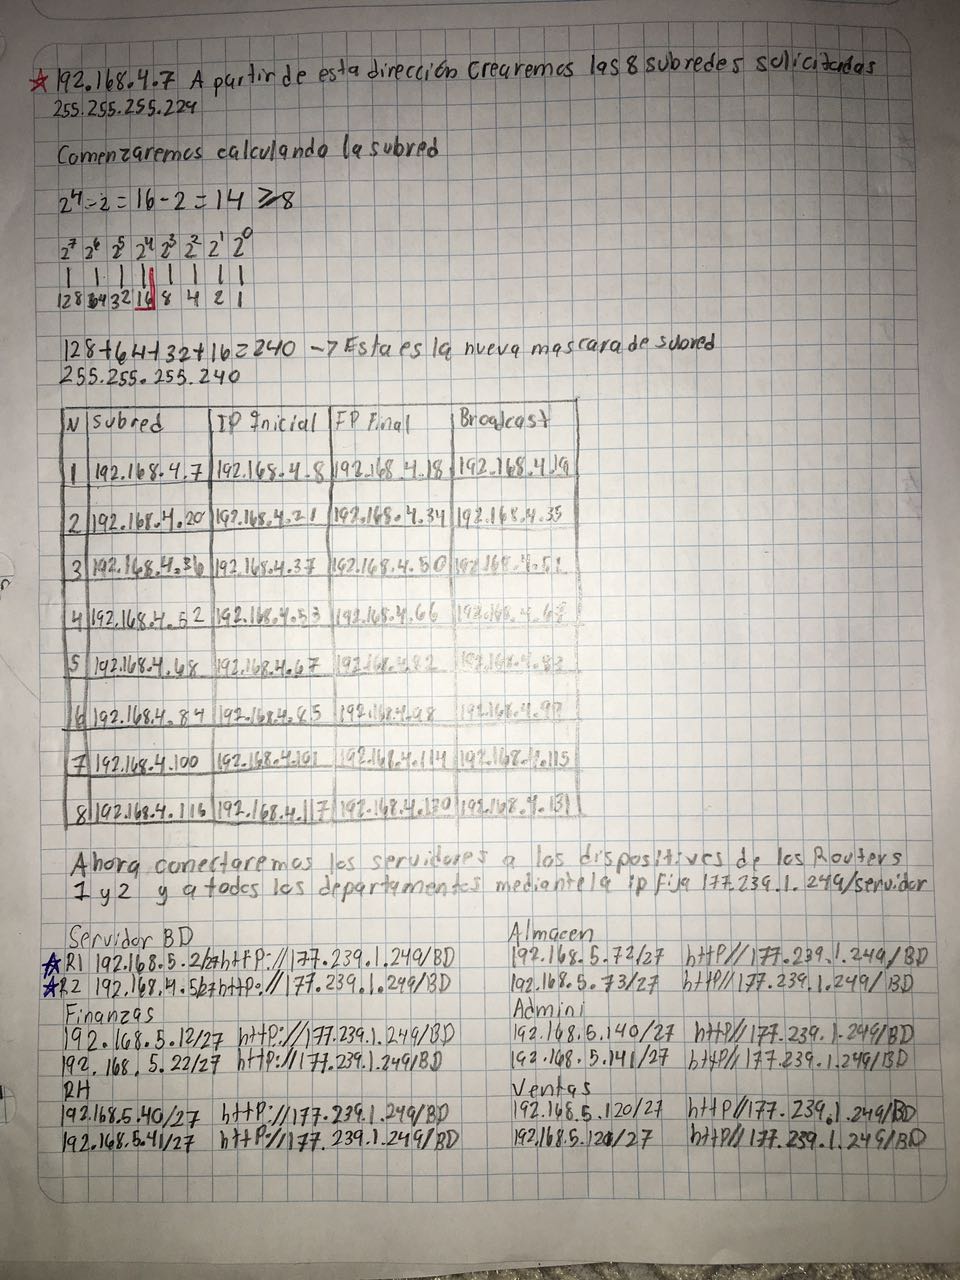 192.168.4.7 A partir de esta dirección Crearemos las 8 subredes solicitadas
255.255.255.224
Comenzaremos calculando la subred
2⁴-2=16-2=14 ≥8
2⁷ 2⁶ 2⁵ 2⁴ 2³ 2² 2¹ 2⁰
1 1 1 1 1 1 1 1
128 64 32 16 8 4 2 1
128+64+32+16=240 -> Esta es la nueva mascara de subred
255.255.255.240
N Subred IP Inicial IP Final Broadcast
1 192.168.4.7 192.168.4.8 192.168.4.18 192.168.4.19
2 192.168.4.20 192.168.4.21 192.168.4.34 192.168.4.35
3 192.168.4.36 192.168.4.37 192.168.4.50 192.168.4.51
4 192.168.4.52 192.168.4.53 192.168.4.66
5 192.168.4.68 192.168.4.67 192.168.4.82 192.168.4.83
6 192.168.4.84 192.168.4.85 192.168.4.98 192.168.4.99
7 192.168.4.100 192.168.4.101 192.168.4.114 192.168.4.115
8 192.168.4.116 192.168.4.117 192.168.4.130 192.168.4.131
Ahora conectaremos los servidores a los dispositivos de los Routers
1 y 2 y a todos los departamentos mediante la ip Fija 177.239.1.249/servidor
Servidor BD
R1 192.168.5.2/27 http://177.239.1.249/BD
R2 192.168.4.5/27 http://177.239.1.249/BD
Finanzas
192.168.5.12/27 http://177.239.1.249/BD
192.168.5.22/27 http://177.239.1.249/BD
RH
192.168.5.40/27 http://177.239.1.249/BD
192.168.5.41/27 http://177.239.1.249/BD
Almacen
192.168.5.72/27 http//177.239.1.249/BD
192.168.5.73/27 http//177.239.1.249/BD
Admini
192.168.5.140/27 http//177.239.1.249/BD
192.168.5.141/27 http//177.239.1.249/BD
Ventas
192.168.5.120/27 http//177.239.1.249/BD
http//177.239.1.249/BD